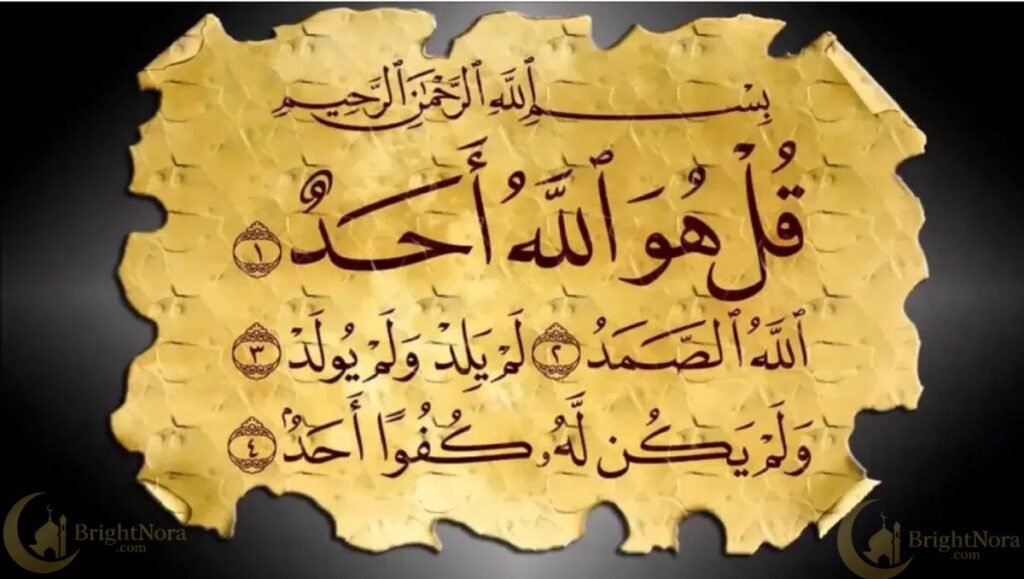 بِسْمِ ٱللَّهِ ٱلرَّحْمَٰنِ ٱلرَّحِيمِ
قُلْ هُوَ ٱللَّهُ أَحَدٌ ١
ٱللَّهُ ٱلصَّمَدُ ٢ لَمْ يَلِدْ وَلَمْ يُولَدْ ٣
وَلَمْ يَكُن لَّهُۥ كُفُوًا أَحَدٌۢ ٤
BrightNora
.com
BrightNora
.com